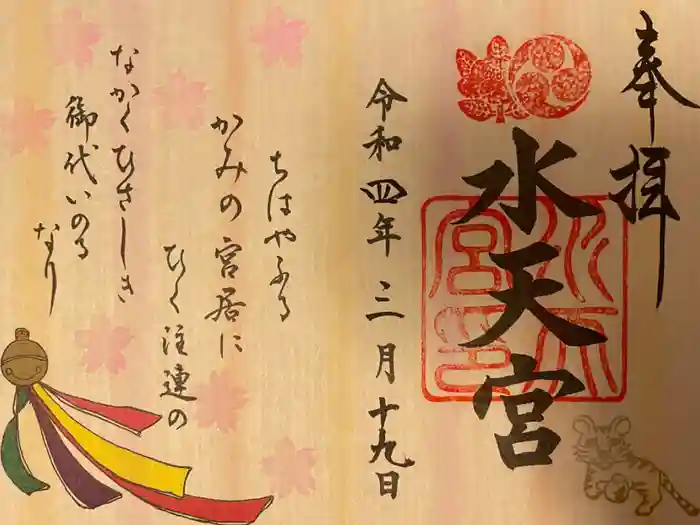 奉拝
水天宮
令和四年三月十九日
ちはやふる
かみの宮居に
ひく注連の
なかくひさしき
御代いのる
なり
水天宮印